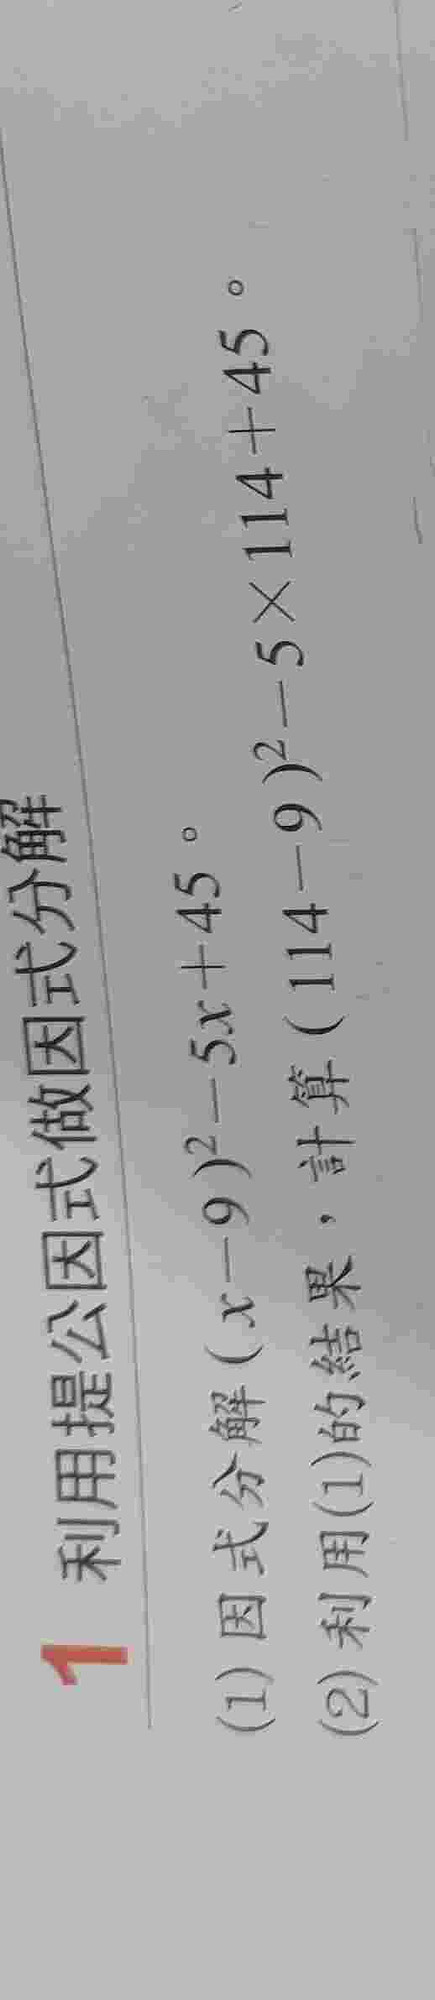 1 利用提公因式做因式分解
(1) 因式分解 (x－9)²－5x＋45。
(2) 利用(1)的結果，計算 (114－9)²－5×114＋45。